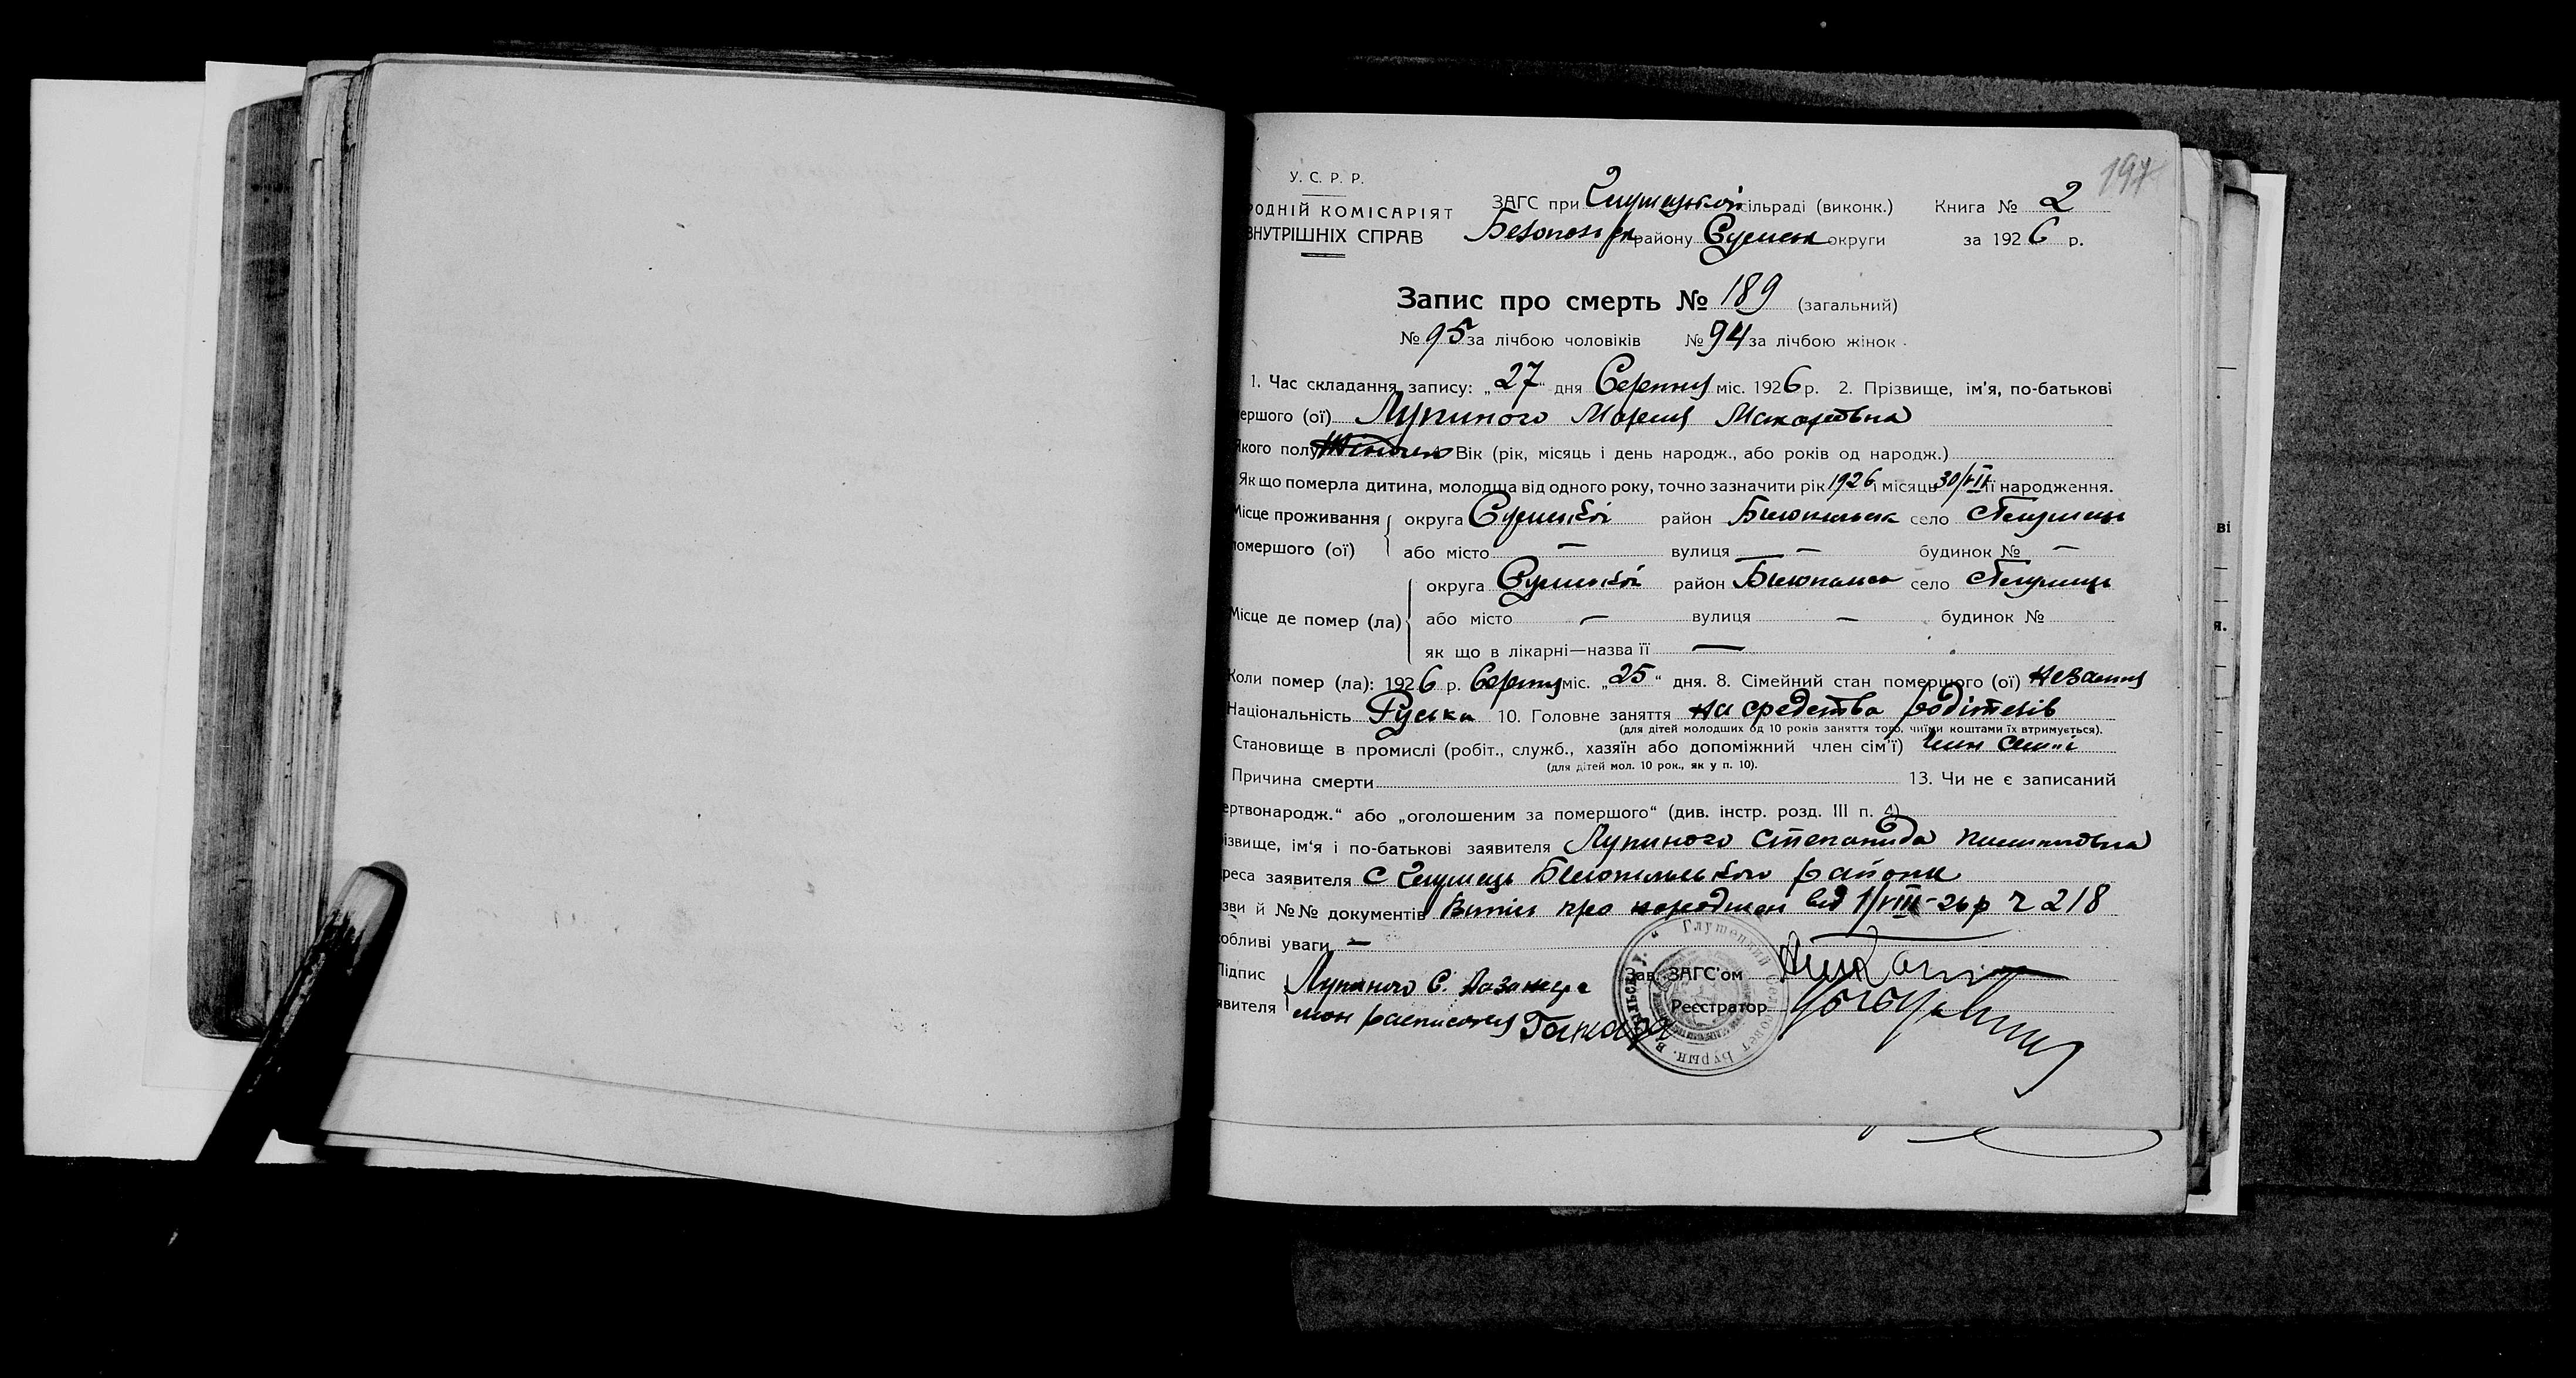 197
У. С. Р. Р.
РОДНІЙ КОМІСАРІЯТ
ВНУТРІШНІХ СПРАВ
ЗАГС при Глушецькой сільраді (виконк.) Книга № 2
району Сумськ округи за 1926 р.
Запис про смерть № 189 (загальний)
№ 95 за лічбою чоловіків № 94 за лічбою жінок.
1. Час складання запису: „27“ дня Серпня міс. 1926 р. 2. Прізвище, ім'я, по-батькові
ершого (ої) Лупиного Мария Макаровна
Якого полу Жіночого Вік (рік, місяць і день народж., або років од народж.)
Як що померла дитина, молодша від одного року, точно зазначити рік 1926 і місяць 30/VII її народження.
Місце проживання округа Сумської район Білопільськ село Глушець
омершого (ої) або місто — вулиця — будинок № —
округа Сумської район Білопільськ село Глушець
Місце де помер (ла) або місто — вулиця — будинок №
як що в лікарні—назва її —
Коли помер (ла): 1926 р. Серпня міс. „25“ дня. 8. Сімейний стан помершого (ої)
Національність Руська 10. Головне заняття на средства родітелів
(для дітей молодших од 10 років заняття того, чиїми коштами їх втримується).
Становище в промислі (робіт., служб., хазяїн або допоміжний член сім'ї) член семї
(для дітей мол. 10 рок., як у п. 10).
Причина смерти 13. Чи не є записаний
ертвонародж.“ або „оголошеним за помершого“ (див. інстр. розд. III п. 4)
ізвище, ім'я і по-батькові заявителя Лупиного Степанида
реса заявителя С Глушець Білопільського району
зви й №№ документів Витяг про народжен від 1/VIII-26р ч 218
обливі уваги —
Підпис Лупиного С. Зав. ЗАГС'ом
явителя расписался Реєстратор
Глушецкий сельсовет Бурын.
ві
я.